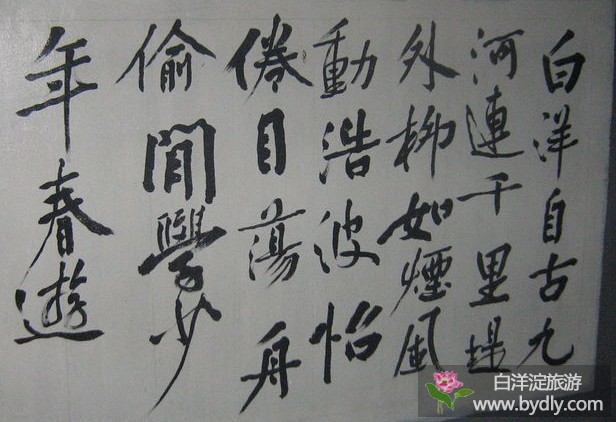 白洋自古九
河連千里堤
外柳如煙風
動浩波怡
倦目蕩舟
偷閒學少
年春遊
白洋淀旅游
www.bydly.com